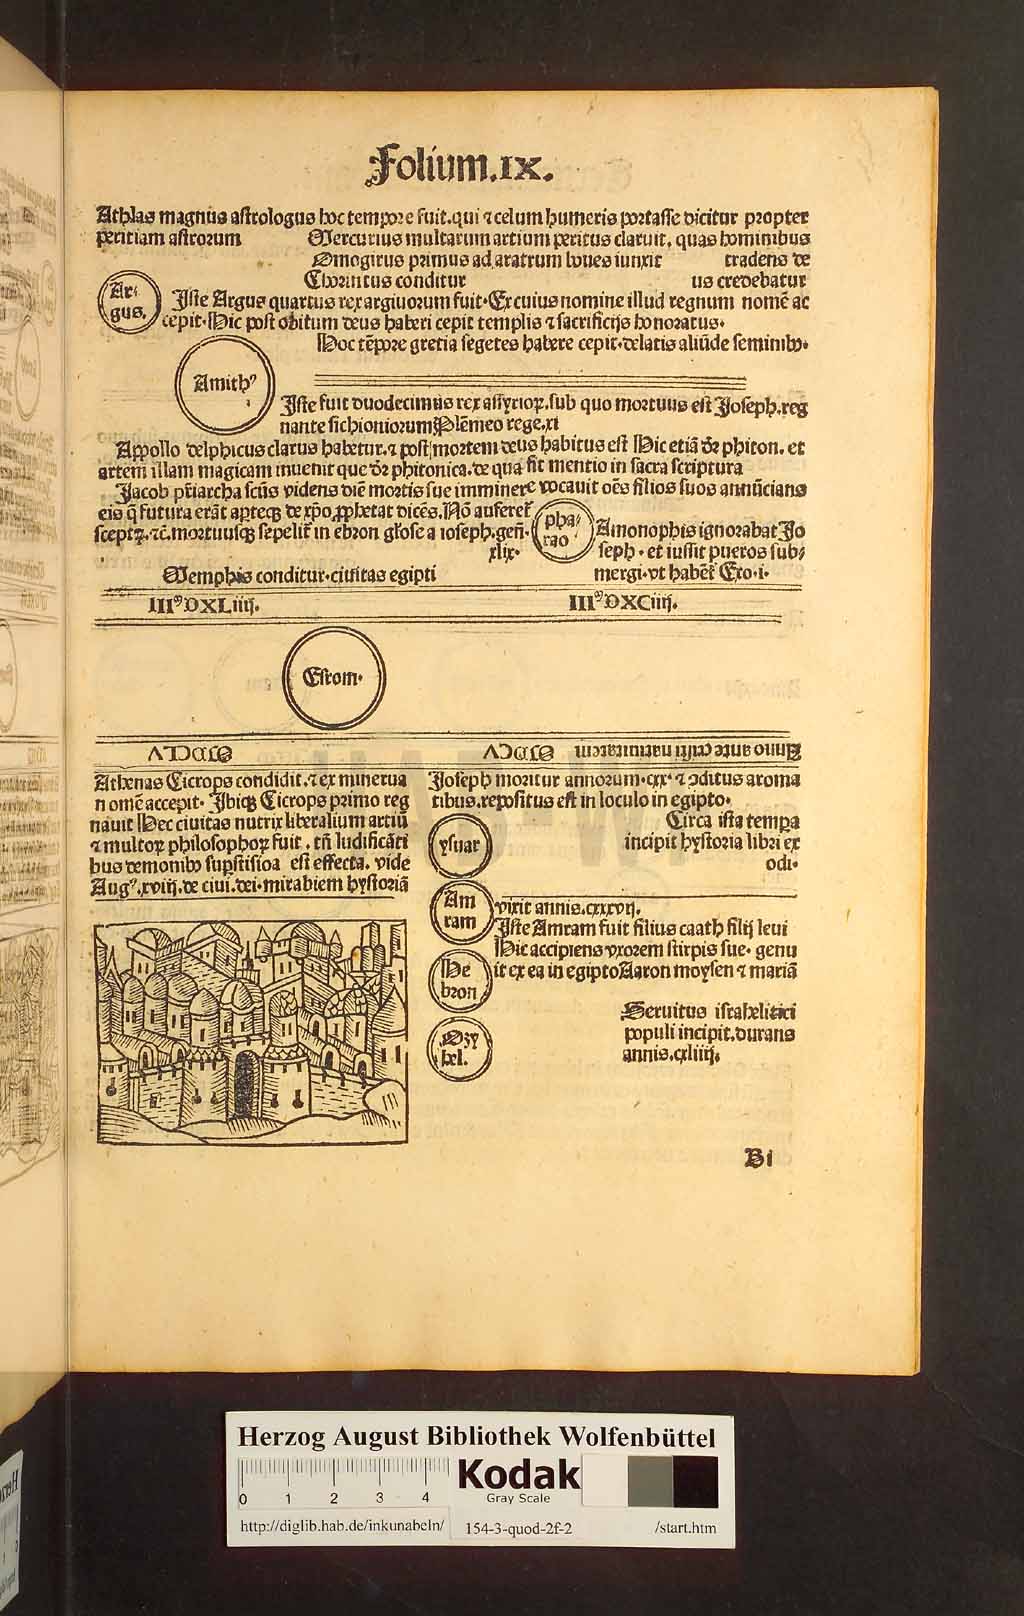 Folium.IX.
Athlas magnus astrologus hoc tempore fuit.qui ⁊ celum humeris portasse dicitur propter
peritiam astrorum Mercurius multarum artium peritus claruit, quas hominibus
Omogirus primus ad aratrum boues iunxit tradens de
Chorintus conditur us credebatur
Ar⸗
gus.
Iste Argus quartus rex argiuorum fuit·Ex cuius nomine illud regnum nomē ac
cepit·Hic post obitum deus haberi cepit templis ⁊ sacrificijs honoratus·
Hoc tēpore gretia segetes habere cepit·delatis aliūde seminibꝰ·
Amithꝰ
Iste fuit duodecimus rex assyrioꝝ.sub quo mortuus est Joseph.reg
nante sichioniorum Plēmeo rege.xi
Appollo delphicus clarus habetur.⁊ post mortem deus habitus est Hic etiā dr̄ phiton. et
artem illam magicam inuenit que dr̄ phitonica.de qua fit mentio in sacra scriptura
Jacob pr̄iarcha scūs videns diē mortis sue imminere vocauit oēs filios suos annūcians
eis q̄ futura erāt aꝑteqꝫ de xp̄o ꝓphetat dicēs. Nō auferet̄
sceptꝝ.⁊c̄.mortuusqꝫ sepelit̄ in ebron gl̄ose a ioseph.gen̄·
xlix·
pha⸗
rao
Amonophis ignorabat Jo
seph·et iussit pueros sub⸗
mergi·vt habet̄ Exo·i·
Memphis conditur·ciuitas egipti
IIIꝰDXLiiij.
IIIꝰDXCiiij.
Esrom·
MDCLV
MDCV
Anno ante cristi natiuitatem
Athenas Cicrops condidit.⁊ ex minerua
n omē accepit· Ibiqꝫ Cicrops primo reg
nauit Hec ciuitas nutrix liberalium artiū
⁊ multoꝝ philosophoꝝ fuit. tn̄ ludificāti
bus demonibꝰ supstisioa est effecta. vide
Augꝰ.xviij.de ciui.dei·mirabiem hystoriā
Joseph moritur annorum·cxˣ ⁊ ↄditus aroma
tibus.repositus est in loculo in egipto·
Circa ista tempa
incipit hystoria libri ex
odi·
ysuar
Am
ram
vixit annis.cxxxvij.
Iste Amram fuit filius caath filij leui
Hic accipiens vxorem stirpis sue· genu
it ex ea in egipto Aaron moysen ⁊ mariā
He
bron
Ozy
bel.
Seruitus israhelitici
populi incipit.durans
annis.cxliiij.
Bi
Herzog August Bibliothek Wolfenbüttel
0 1 2 3 4
Kodak
Gray Scale
http://diglib.hab.de/inkunabeln/ 154-3-quod-2f-2 /start.htm